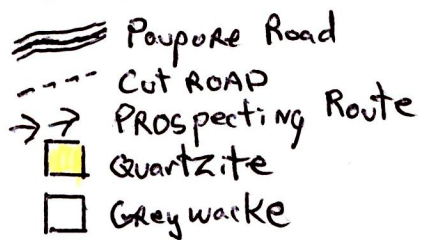 Poupore Road
Cut ROAD
PROSpecting Route
Quartzite
Greywacke